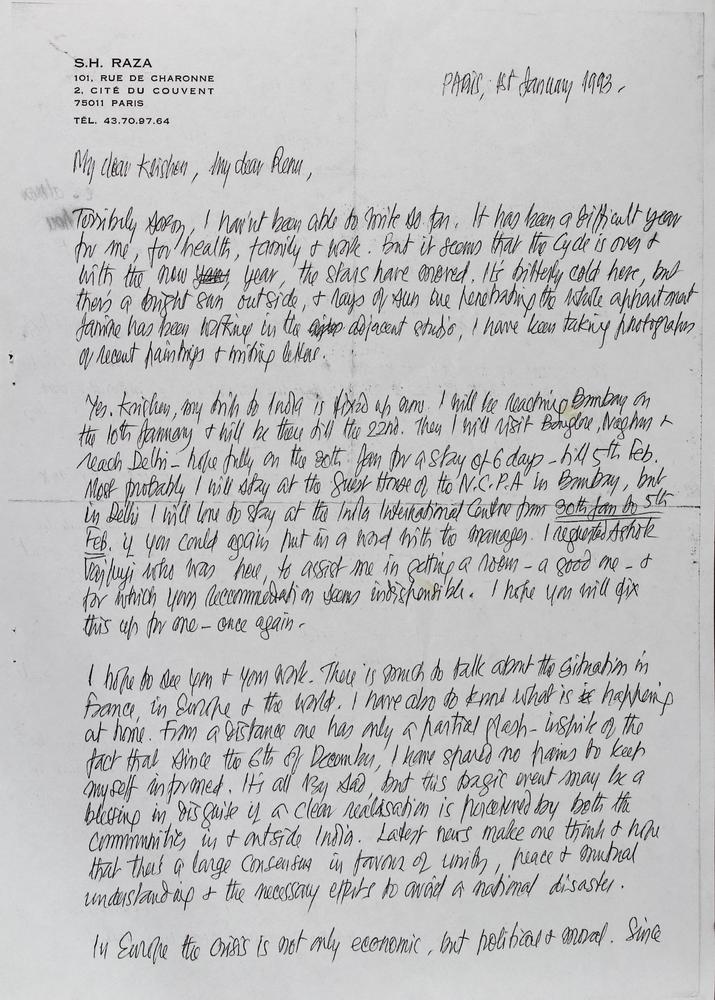 S.H. RAZA
101, RUE DE CHARONNE
2, CITÉ DU COUVENT
75011 PARIS
TÉL. 43.70.97.64
PARIS, 1st January 1993.
My dear Krishen, my dear Renu,
Terribly sorry, I havn't been able to write so far. It has been a difficult year
for me, for health, family & work. But it seems that the Cycle is over &
with the new year, the stars have moved. It's bitterly cold here, but
there's a bright sun outside, & rays of sun are penetrating the whole appartment
Janine has been working in the adjacent studio, I have been taking photographs
of recent paintings & writing letters.
Yes. Krishen, my trip to India is fixed up now. I will be reaching Bombay on
the 10th January & will be there till the 22nd. Then I will visit Banglore, Nagpur &
reach Delhi - hope fully on the 30th. Jan for a stay of 6 days - till 5th Feb.
Most probably I will stay at the Guest House of the N.C.P.A in Bombay, but
in Delhi I will love to stay at the India International Centre from 30th Jan to 5th
Feb. if you could again put in a word with the manager. I requested Ashok
Vajpeyi who was here, to assist me in getting a room - a good one - &
for which your reccommedation seems indispensible. I hope you will fix
this up for me - once again.
I hope to see you & your work. There is much to talk about the situation in
France, in Europe & the world. I have also to know what is happening
at home. From a distance one has only a partial flash - inspite of the
fact that since the 6th of December, I have spared no pains to keep
myself informed. It's all sad but this tragic event may be a
blessing in disguise if a clear realisation is perceived by both the
communities in & outside India. Latest news make one think & hope
that there's a large consensus in favour of unity, peace & mutual
understanding & the necessary efforts to avoid a national disaster.
In Europe the crisis is not only economic, but political & moral. Since